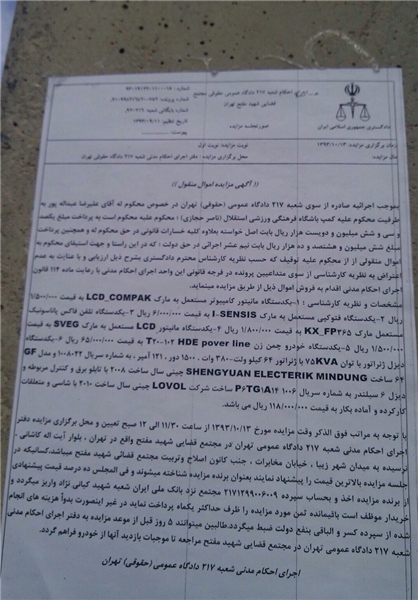 اجرای احکام شعبه ۲۱۷ دادگاه عمومی حقوقی مجتمع
قضایی شهید مفتح تهران
دادگستری جمهوری اسلامی ایران
صورتجلسه مزایده
زمان برگزاری مزایده: ۱۳۹۳/۱۰/۱۳
نوبت مزایده: نوبت اول
محل برگزاری مزایده: دفتر اجرای احکام مدنی شعبه ۲۱۷ حقوقی تهران
((آگهی مزایده اموال منقول))
بموجب اجرائیه صادره از سوی شعبه ۲۱۷ دادگاه عمومی (حقوقی) تهران در خصوص محکوم له آقای علیرضا عبداله پور به
طرفیت محکوم علیه کمپ باشگاه فرهنگی ورزشی استقلال (ناصر حجازی): محکوم علیه محکوم است به پرداخت مبلغ یکصد
و سی و شش میلیون و دویست هزار ریال بابت اصل خواسته بعلاوه کلیه خسارات قانونی در حق محکوم له و همچنین پرداخت
مبلغ شش میلیون و هشتصد و ده هزار ریال بابت نیم عشر اجرائی در حق دولت؛ که در این راستا و جهت استیفای محکوم به
اموال منقولی از محکوم علیه توقیف که حسب نظریه کارشناس محترم دادگستری بشرح ذیل ارزیابی و با عنایت به عدم
اعتراض به نظریه کارشناسی از سوی متداعیین پرونده در فرجه قانونی این واحد اجرای احکام مدنی با رعایت ماده ۱۱۴ قانون
اجرای احکام مدنی اقدام به فروش اموال ذیل از طریق مزایده مینماید.
مشخصات و نظریه کارشناسی: ۱-یکدستگاه مانیتور کامپیوتر مستعمل به مارک LCD_COMPAK به قیمت ۱/۵۰۰/۰۰۰
ریال ۲-یکدستگاه فتوکپی مستعمل به مارک I-SENSIS به قیمت ۶/۰۰۰/۰۰۰ ریال ۳-یکدستگاه تلفن فاکس پاناسونیک
مستعمل مارک KX_FP۳۶۵ به قیمت ۱/۸۰۰/۰۰۰ ریال ۴-یکدستگاه مانیتور LCD مستعمل به مارک SVEG به قیمت
۱/۵۰۰/۰۰۰ ریال ۵-یکدستگاه خودرو چمن زن T۲۰-۱۰۲ HDE pover line به قیمت ۶۵/۰۰۰/۰۰۰ ریال ۶-یکدستگاه
دیزل ژنراتور با توان ۷۵KVA با ژنراتور ۶۴ کیلو وات-۳۸۰ وات ۱۵۰۰ دور، ۱۲۱ آمپر، به شماره سریال ۱۰۰۸۰۲۲ و مدل GF
۶۴ ساخت SHENGYUAN ELECTERIK MINDUNG چینی سال ساخت ۲۰۰۸ با تابلو برق و کنترل مربوطه و
دیزل ۶ سیلندر به شماره سریال ساخت شرکت LOVOL چینی سال ساخت ۲۰۱۰ با شاسی و متعلقات
کارکرده و آماده بکار به قیمت ۱۱۸/۰۰۰/۰۰۰ ریال می باشد.
با توجه به مراتب فوق الذکر وقت مزایده مورخ ۱۳۹۳/۱۰/۱۳ از ساعت ۱۱/۳۰ الی ۱۲ صبح تعیین و محل برگزاری مزایده دفتر
اجرای احکام مدنی شعبه ۲۱۷ دادگاه عمومی تهران در مجتمع قضایی شهید مفتح واقع در تهران، بلوار آیت اله کاشانی،
نرسیده به میدان شهر زیبا، خیابان مخابرات، جنب کانون اصلاح و تربیت مجتمع قضائی شهید مفتح میباشد.کسانیکه در
جلسه مزایده بالاترین قیمت را پیشنهاد نمایند بعنوان برنده مزایده شناخته میشوند و فی المجلس ده درصد قیمت پیشنهادی
از برنده مزایده اخذ و بحساب سپرده ۲۱۷۱۲۹۹۰۰۶۰۰۹ مجتمع نزد بانک ملی ایران شعبه شهید کیانی نژاد واریز میگردد و
خریدار موظف است باقیمانده ثمن مورد مزایده را ظرف حداکثر یکماه پرداخت نماید در غیر اینصورت بدواً هزینه های انجام
شده از سپرده کسر و الباقی بنفع دولت ضبط میگردد.طالبین میتوانند ۵ روز قبل از موعد مزایده به دفتر اجرای احکام مدنی
شعبه ۲۱۷ دادگاه عمومی تهران در مجتمع قضایی شهید مفتح مراجعه تا موجبات بازدید آنها از خودرو فراهم گردد.
اجرای احکام مدنی شعبه ۲۱۷ دادگاه عمومی (حقوقی) تهران